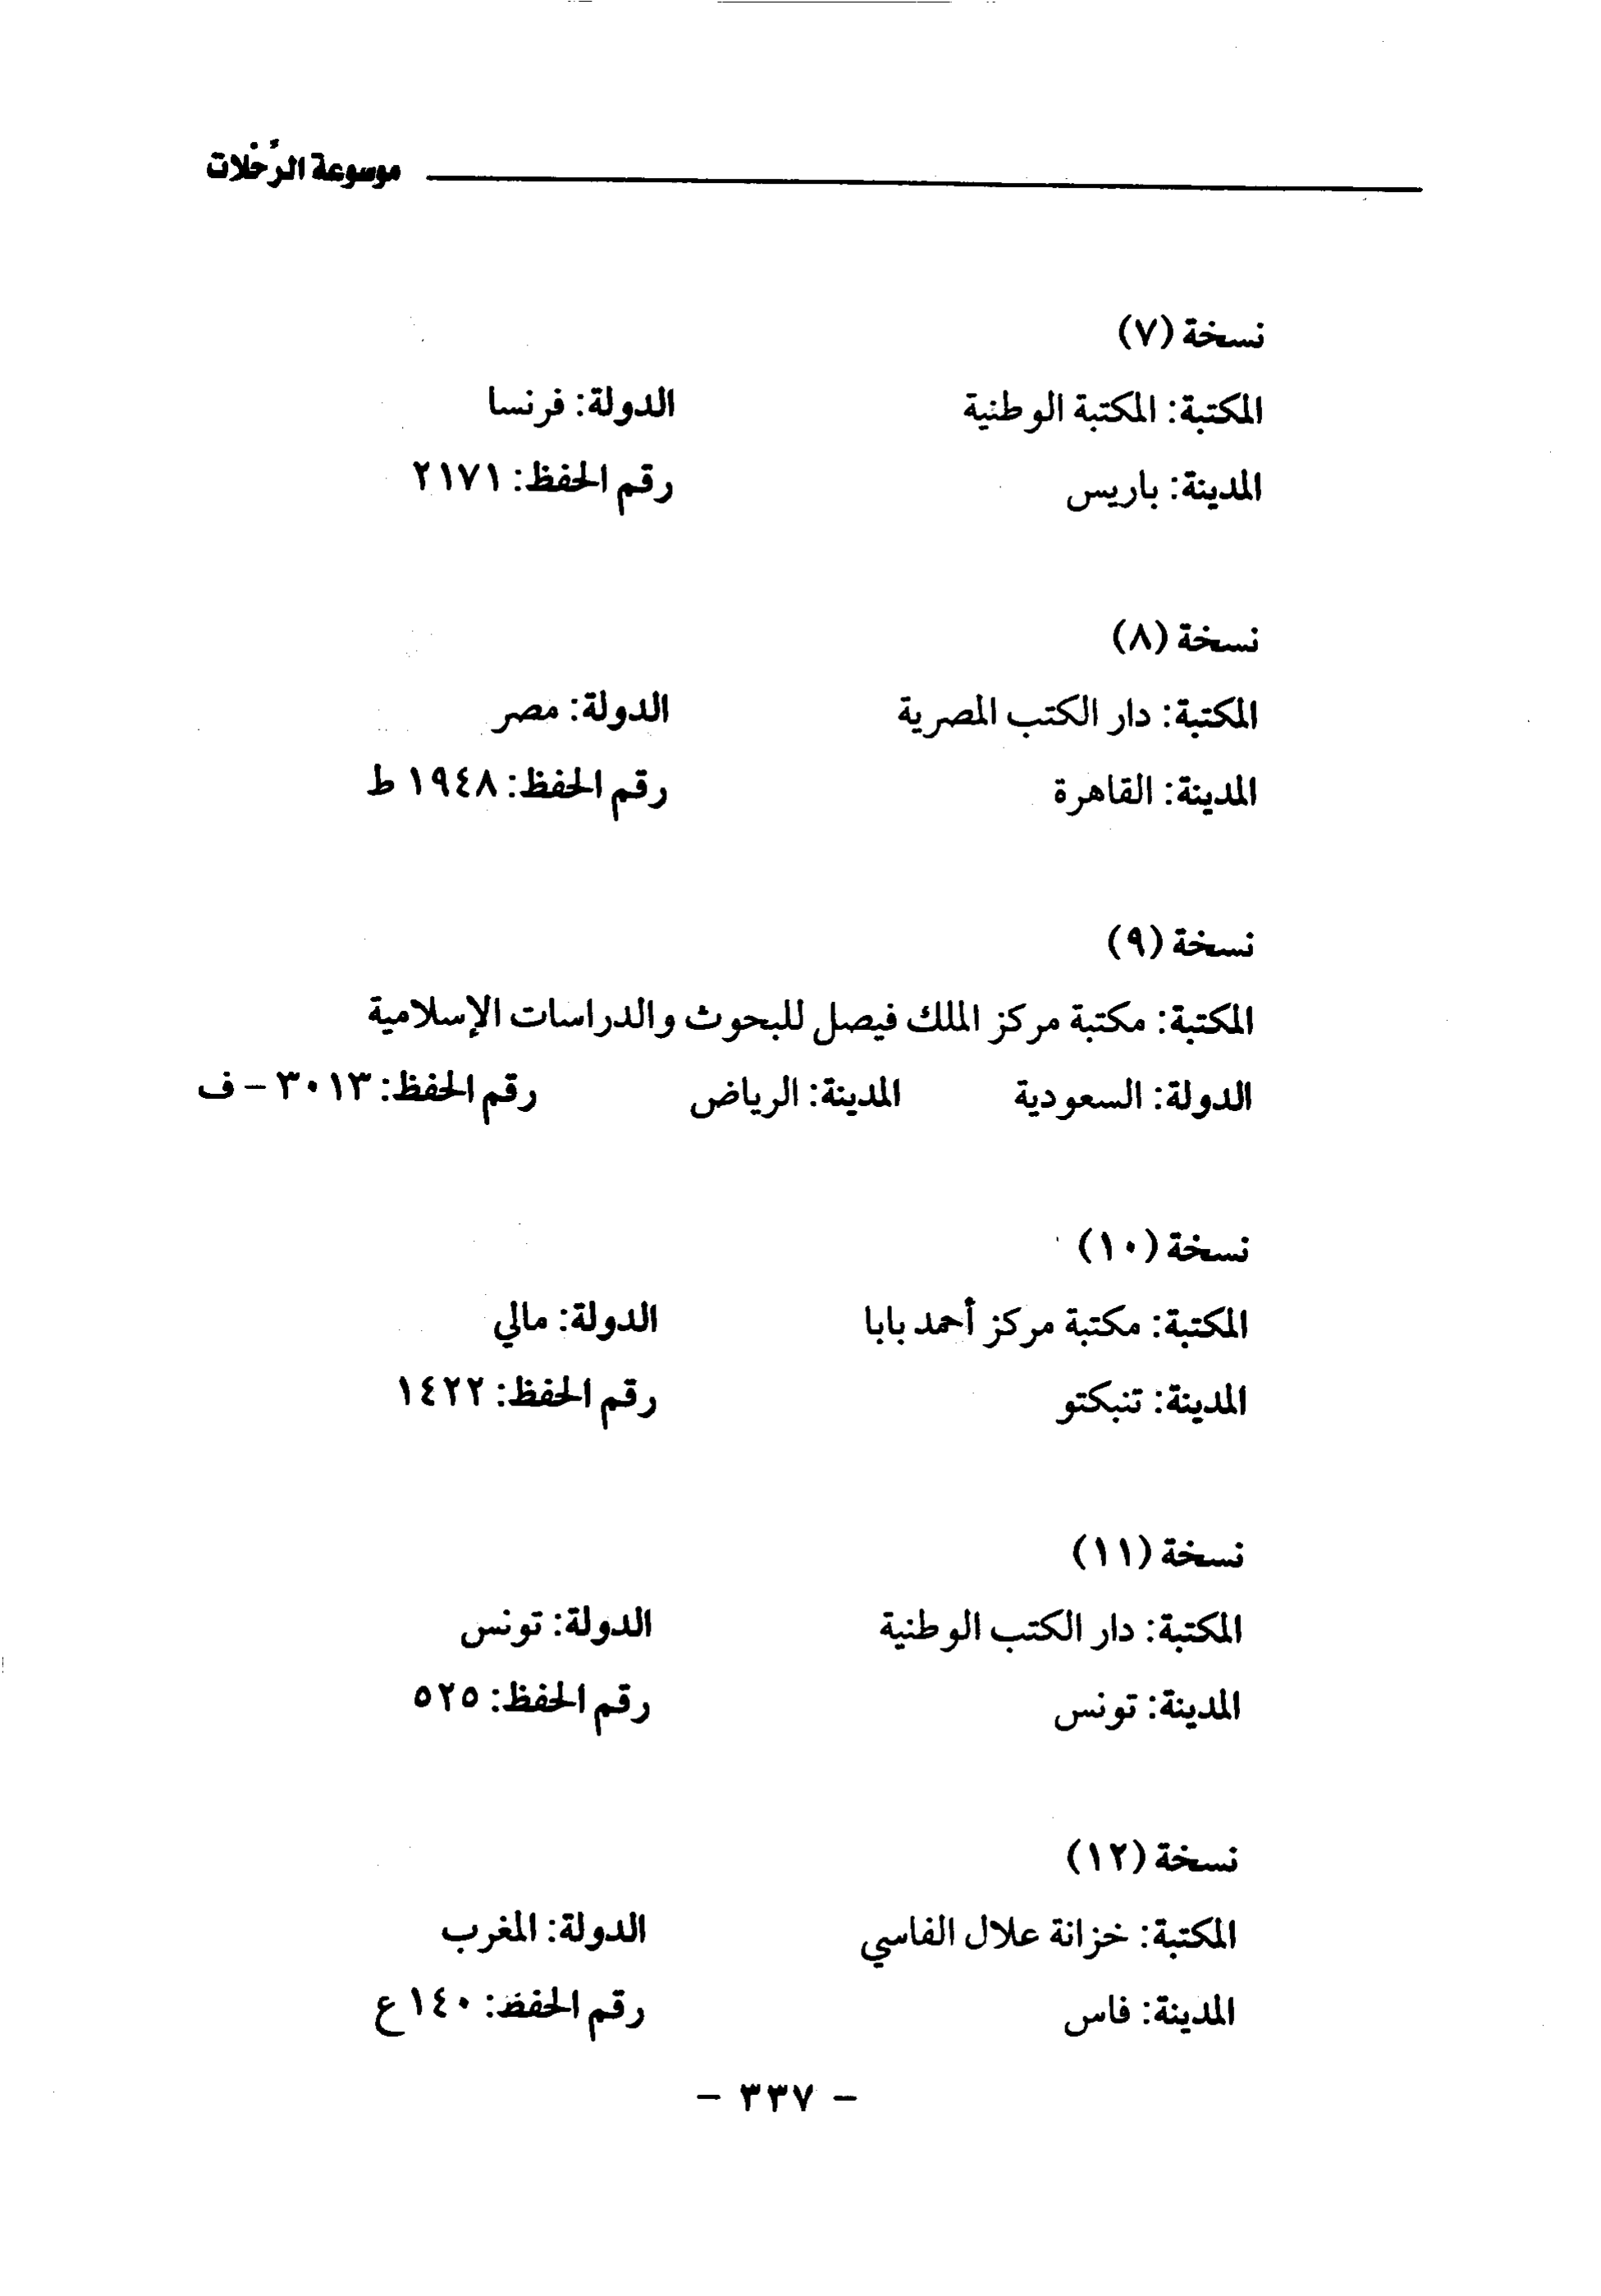 موسوعة الرّحلات
نسخة (٧)
المكتبة: المكتبة الوطنية الدولة: فرنسا
المدينة: باريس رقم الحفظ: ٢١٧١
نسخة (٨)
المكتبة: دار الكتب المصرية الدولة: مصر
المدينة: القاهرة رقم الحفظ: ١٩٤٨ ط
نسخة (٩)
المكتبة: مكتبة مركز الملك فيصل للبحوث والدراسات الإسلامية
الدولة: السعودية المدينة: الرياض رقم الحفظ: ٣٠١٣ – ف
نسخة (١٠)
المكتبة: مكتبة مركز أحمد بابا الدولة: مالي
المدينة: تنبكتو رقم الحفظ: ١٤٢٢
نسخة (١١)
المكتبة: دار الكتب الوطنية الدولة: تونس
المدينة: تونس رقم الحفظ: ٥٢٥
نسخة (١٢)
المكتبة: خزانة علال الفاسي الدولة: المغرب
المدينة: فاس رقم الحفظ: ١٤٠ع
– ٣٣٧ –